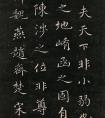 夫天下非小弱
之地崤函之固自
陳涉之位非尊
魏燕趙齊楚